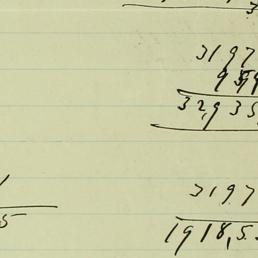 3
3197
959
32,935
1
5
319.7
1918,5